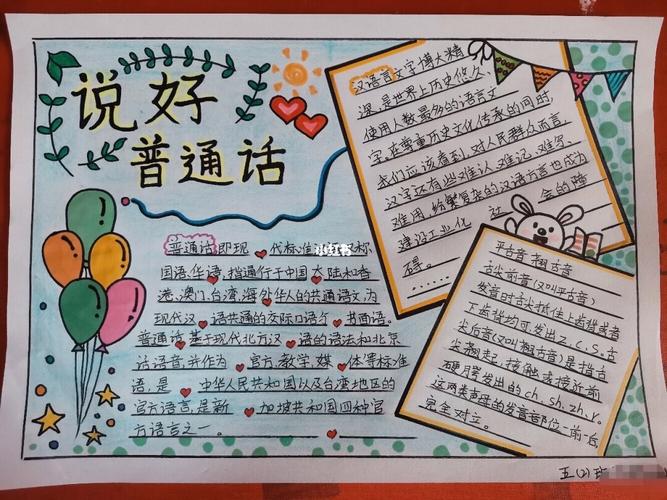 说好
普通话
普通话即现 代标准 又称
小红书
国语、华语，指通行于中国大陆和香
港、澳门、台湾、海外华人的共通语文，为
现代汉 语共通的交际口语与 书面语。
普通话基于现代北方汉 语的语法和北京
话语音，并作为 官方、教学、媒 体等标准
语，是 中华人民共和国以及台湾地区的
官方语言，是新 加坡共和国四种官
方语言之一。
汉语言文字博大精
深，是世界上历史悠久、
使用人数最多的语言文
字，在尊重历史文化传承的同时，
我们应该看到，对人民群众而言，
汉字还有些难认、难记、难写、
难用，纷繁复杂的汉语方言也成为
建设工业化 社 会的障
碍。
平舌音 翘舌音
舌尖前音(又叫平舌音)
发音时舌尖抵住上齿背或者
下齿背均可发出z、c、s。舌
尖后音(又叫翘舌音)是指舌
尖翘起，接触或接近前
硬腭发出的ch、sh、zh、r。
这两类声母的发音部位一前一后，
完全对立。
五(2)班